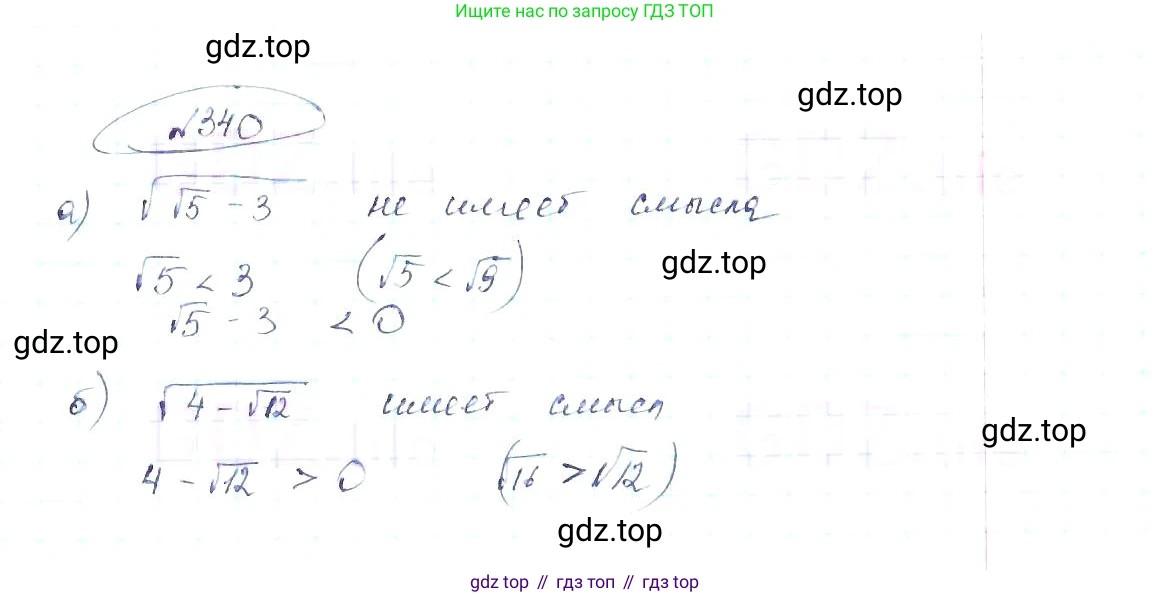 Ищите нас по запросу ГДЗ ТОП
gdz.top
gdz.top
№340
а) √(√5 - 3) не имеет смысла
√5 < 3 (√5 < √9)
gdz.top
√5 - 3 < 0
gdz.top
б) √(4 - √12) имеет смысл
gdz.top
4 - √12 > 0 (√16 > √12)
gdz.top
gdz top // гдз топ // гдз top